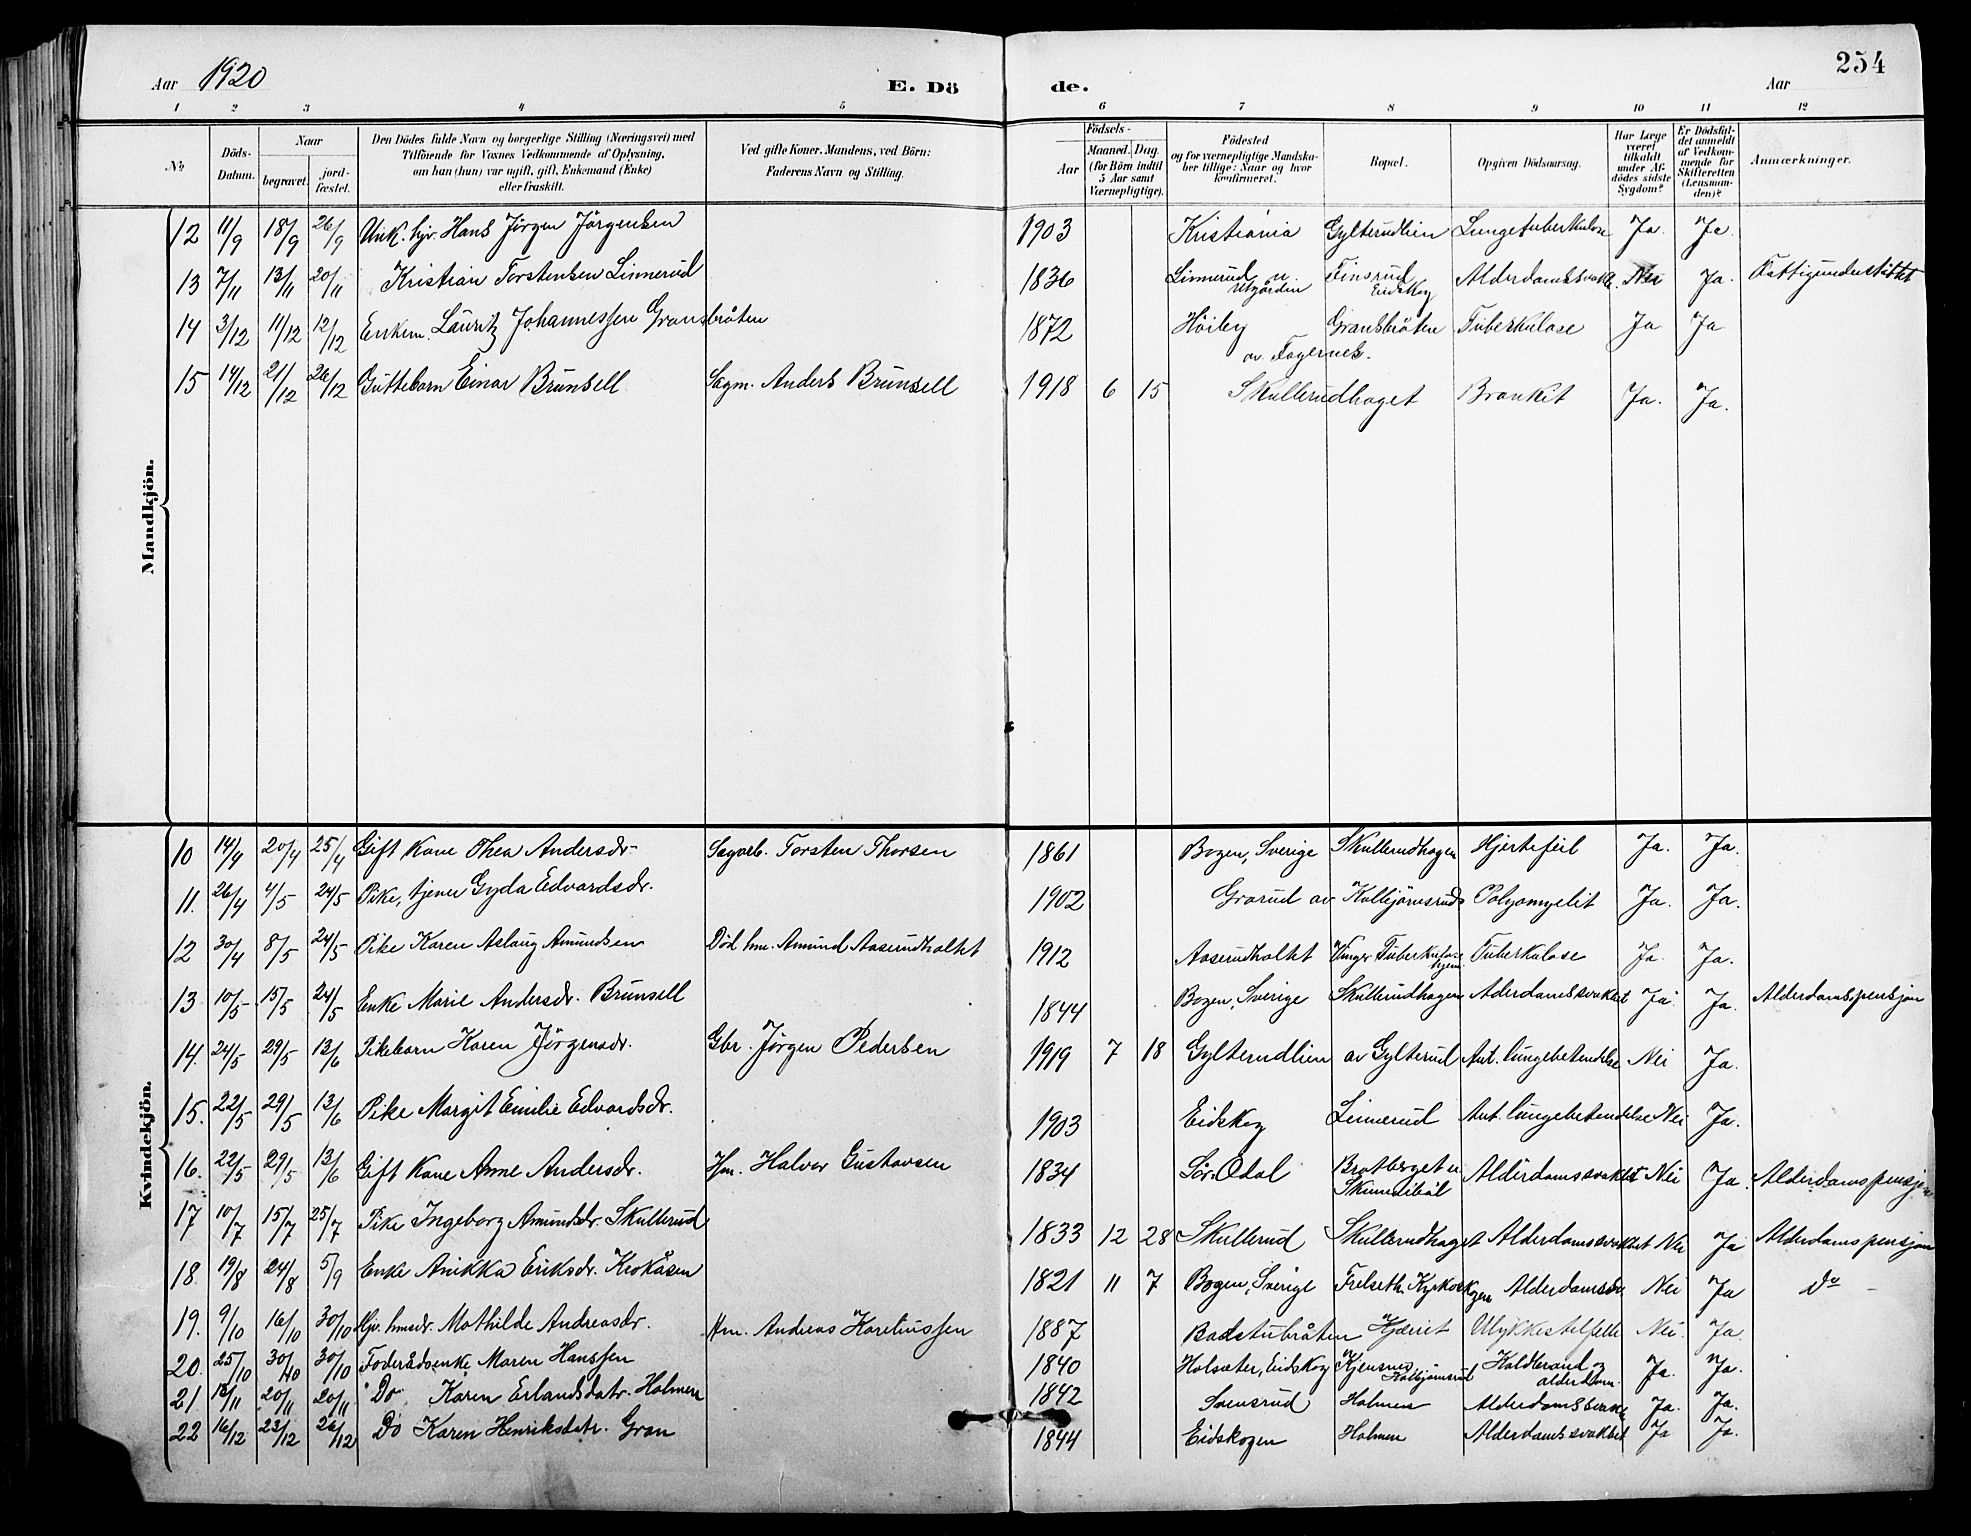 Aar 1920 E. Dö de. Aar 254
1 2 3 4 5 6 7 8 9 10 11 12
No
Döds-Datum.
Naar
begravet. jord-fæstet.
Den Dödes fulde Navn og borgerlige Stilling (Næringsvei) med
Tilföiende for Voxnes Vedkommende af Oplysning,
om han (hun) var ugift, gift, Enkemand (Enke)
eller fraskilt.
Ved gifte Koner: Mandens, ved Börn:
Faderens Navn og Stilling.
Födsels-
Aar Maaned. Dag.
(for Börn indtil
5 Aar samt
Værnepligtige).
Födested
og for værnepligtige Mandska-
ber tillige: Naar og hvor
konfirmeret.
Bopæl.
Opgiven Dödsaarsag.
Har Læge
været
tilkaldt
under Af-
dödes sidste
Sygdom?
Er Dödsfal-
det anmeldt
af Vedkom-
mende for
Skifteretten
(Lensman-
den)?
Anmærkninger.
Mandkjön.
12 11/9 18/9 26/9 Unk. hjv. Hans Jörgen Jörgensen 1903 Kristiania Gylterudlien Lungetuberkulose Ja. Ja.
13 7/11 13/11 20/11 Kristian Torstensen Linnerud 1836 Linnerud u. Utgården Finsrud Eidskog Alderdomssvakh. Nei Ja. Fattigunderstöttet
14 3/12 11/12 12/12 Enkem. Lauritz Johannessen Gransbråten 1872 Höiby Gransbråten Tuberkulose Ja Ja
av Fagernes.
15 14/12 21/12 26/12 Guttebarn Einar Brunsell Sagm. Anders Brunsell 1918 6 15 Skullerudhaget Bronkit Ja. Ja.
Kvindekjön.
10 14/4 20/4 25/4 Gift Kone Thea Andersdr. Sagarb. Torsten Thorsen 1861 Bogen, Sverige Skullerudhagen Hjertefeil Ja. Ja.
11. 26/4 4/5 24/5 Pike, tjener Gyda Edvardsdr. 1902 Grarud av Kolbjörnsruds Polyomyelit Ja. Ja.
12 30/4 8/5 24/5 Pike Karen Aslaug Amundsen Död hm. Amund Aaserudholtet 1912 Aaserudholtet Vinger Tuberkulose hjem Tuberkulose Ja. Ja.
13 10/5 15/5 24/5 Enke Marie Andersdr. Brunsell 1844 Bogen, Sverige Skullerudhagen Aderdomssvakhet Ja. Ja. Alderdomspensjon
14. 24/5 29/5 13/6 Pikebarn Karen Jörgensdr. Gbr. Jörgen Pedersen 1919 7 18 Gylterudlien av Gylterud Ant. lungebetendelse Nei Ja.
15. 22/5 29/5 13/6 Pike Margit Emilie Edvardsdr. 1903 Eidskog Linnerud Ant. lungebetendelse Nei Ja.
16. 22/5 29/5 13/6 Gift Kone Anne Andersdr. Hm. Halvor Gustavsen 1834 Sör-Odal Bratberget u. Skinnesdböl Alderdomssvakhet Nei Ja. Alderdomspensjon
17 10/7 15/7 25/7 Pike Ingeborg Amundsdr. Skullerud 1833 12 28 Skullerud Skullerudhaget Alderdomssvakhet Nei Ja Alderdomspensjon
18. 19/8 24/8 5/9 Enke Anikka Eriksdr. Krokåsen 1821 11 7 Bogen, Sverige Frelseth Alderdomssv. Nei Ja Do
19. 9/10 16/10 30/10 Hjv. hmsdr. Mathilde Andreasdr. Hm. Andreas Kareliussen 1887 Badstubråten Kjæret Ulykkestilfelle Nei. Ja.
20. 25/10 30/10 30/10 Foderådsenke Maren Hanssen 1840 Holsæter, Eidskog Kjensnes Kolbjörnsrud Koldbrand og alderdom. Ja. Ja.
21. 12/11 20/11 20/11 Do Karen Erlandsdatr. Holmen 1842 Svensrud Holmen Alderdomssvakh Ja. Ja.
22 16/12 23/12 26/12 Do Karen Henriksdatr. Gran 1844 Eidskogen Holmen Alderdomssvakhet Ja Ja.